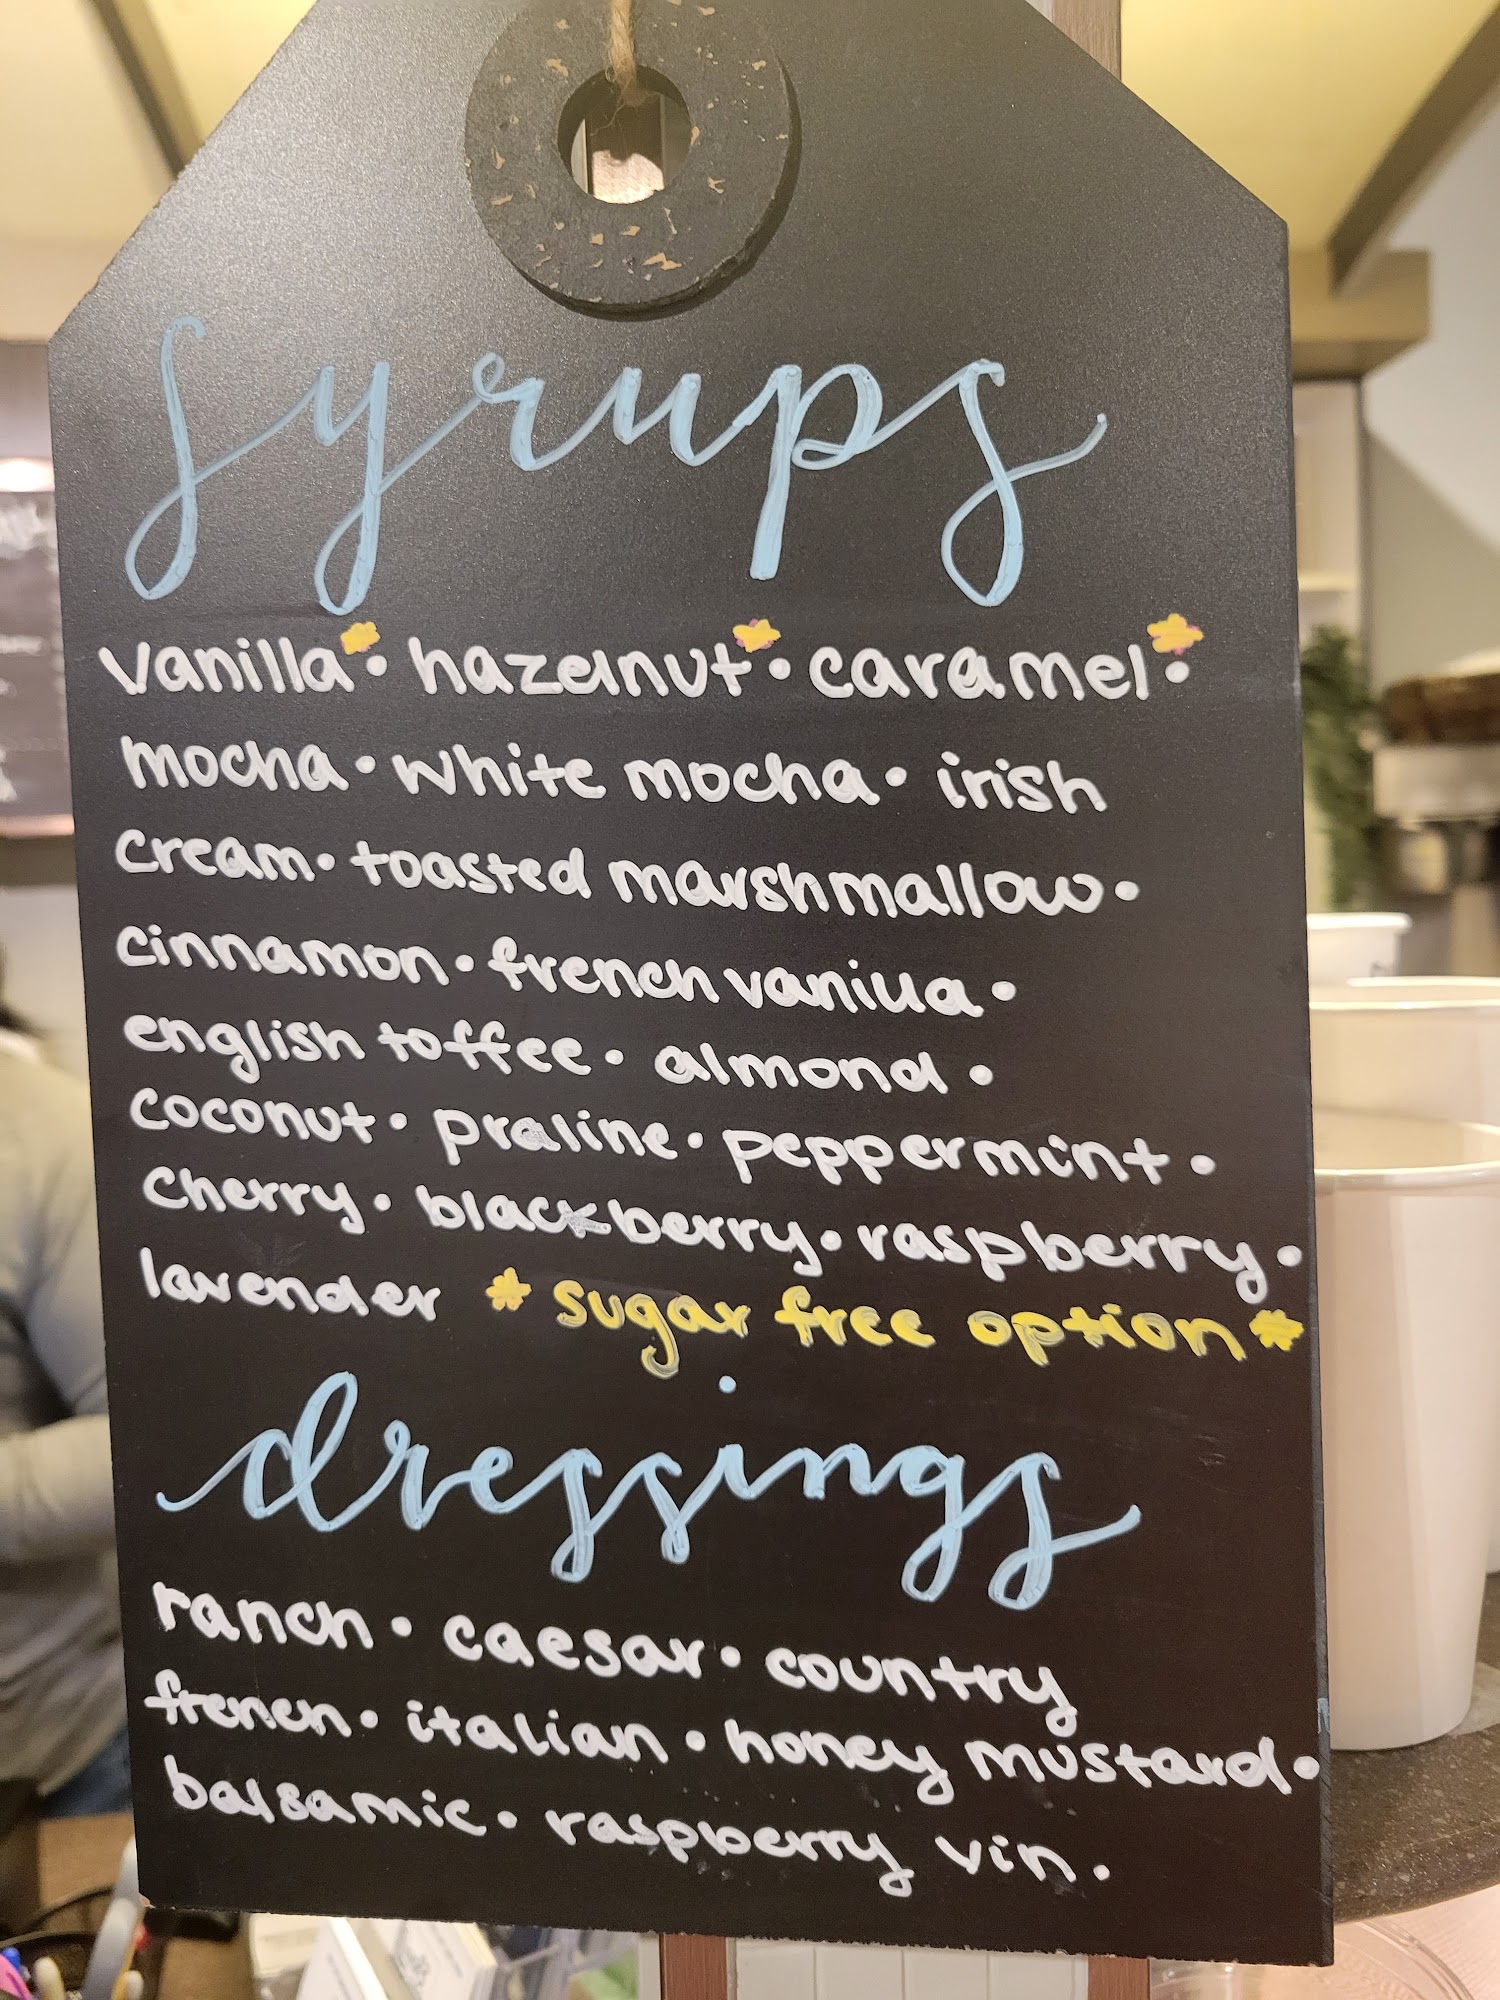 syrups
vanilla* • hazelnut* • caramel* •
mocha • white mocha • irish
cream • toasted marshmallow •
cinnamon • french vanilla •
english toffee • almond •
coconut • praline • peppermint •
cherry • blackberry • raspberry •
lavender * sugar free option *
dressings
ranch • caesar • country
french • italian • honey mustard •
balsamic • raspberry vin.